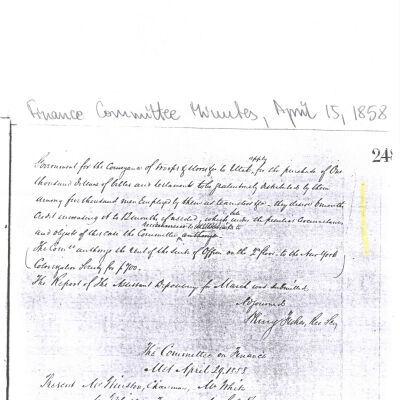 Finance Committee Minutes, April 15, 1858
248
apply
Government for the Conveyance of troops & stores &c to Utah, for the purchase of One
thousand Dollars of bibles and testaments to be gratuitously distributed by them
among five thousand men employed by them as teamsters &c - they desire 6 months
Credit increasing it to 12 months if needed, which under the peculiar circumstances
recommend to
and objects of this case the Committee authorize
The Com^ee authorize the rent of the suite of Offices on the 3^d floor to the New York
Colonization Society for $700.
The Report of the Assistant Depositary for March was submitted.
Adjourned
Fisher, Rec Sec
The Committee on Finance
Met April 29, 1858
Present Mr Winston, Chairman, Mr White